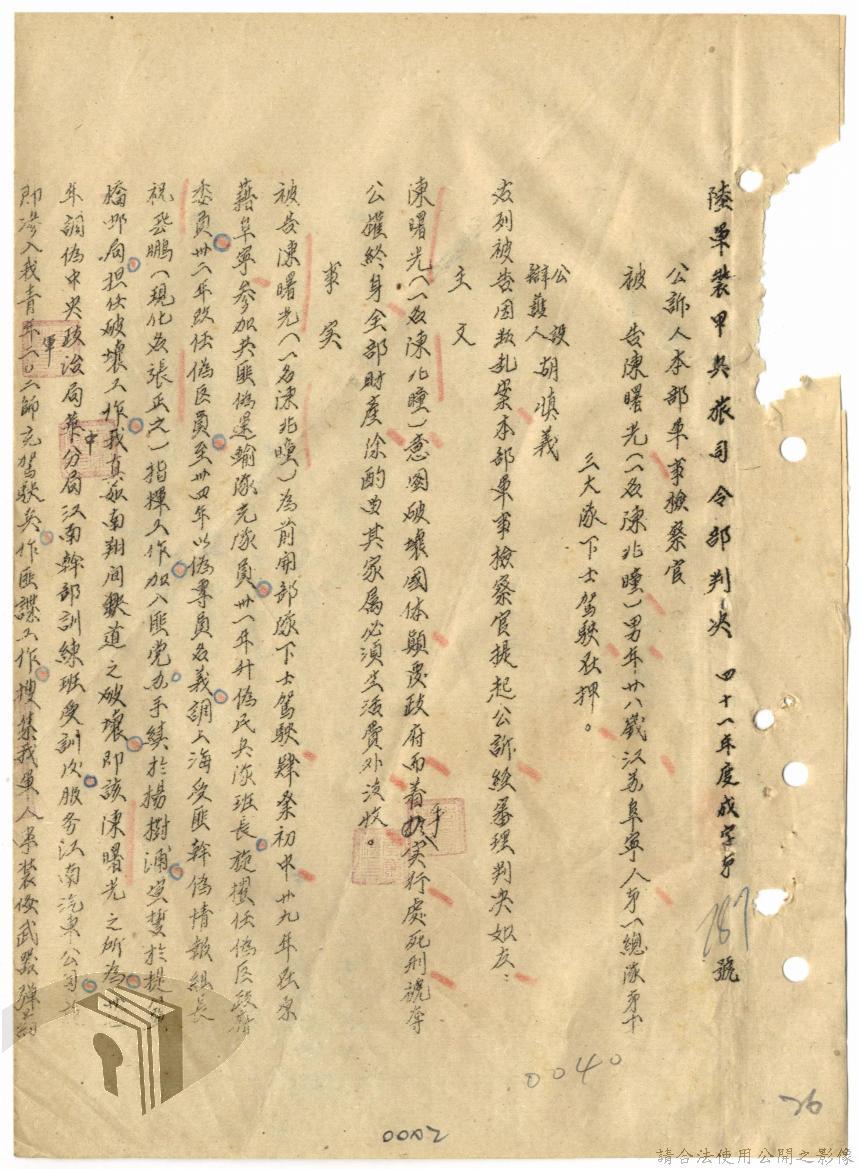 陸軍裝甲兵旅司令部判决 四十一年度成字第187號
公訴人本部軍事檢察官
被 告陳曙光(一名陳兆曈)男年卅八歲江苏阜寧人第一總隊第十
三大隊下士駕駛在押。
公設辯護人 胡慎義
右列被告因叛乱案本部軍事檢察官提起公訴經審理判决如左:
主 文
陳曙光(一名陳兆曈)意圖破壞國体顛覆政府而着手实行處死刑褫奪
公權終身全部財產除酌留其家屬必須生活費外没收。
事 实
被告陳曙光(一名陳兆曈)為前開部隊下士駕駛肄業初中卅九年在原
藉阜寧参加共匪偽運輸隊充隊員卅一年升偽民兵隊班長旋擢任偽區政府
委員卅二年改任偽區員至卅四年以偽專員名義調上海受匪幹偽情報組長
祝雲鵬(現化名張正之)指揮工作加入匪党办手續於揚樹浦
橋邨局担任破壞工作我真茹南翔间鉄道之破壞即該陳曙光之所為卅
年調偽中央政治局華分局江南幹部訓練班受訓后服务江南汽車公司
即滲入我青年二〇二師充駕駛兵作匪諜工作搜集我軍人事裝俻武器彈药
軍
中
0040
0002
26
請合法使用公開之影像